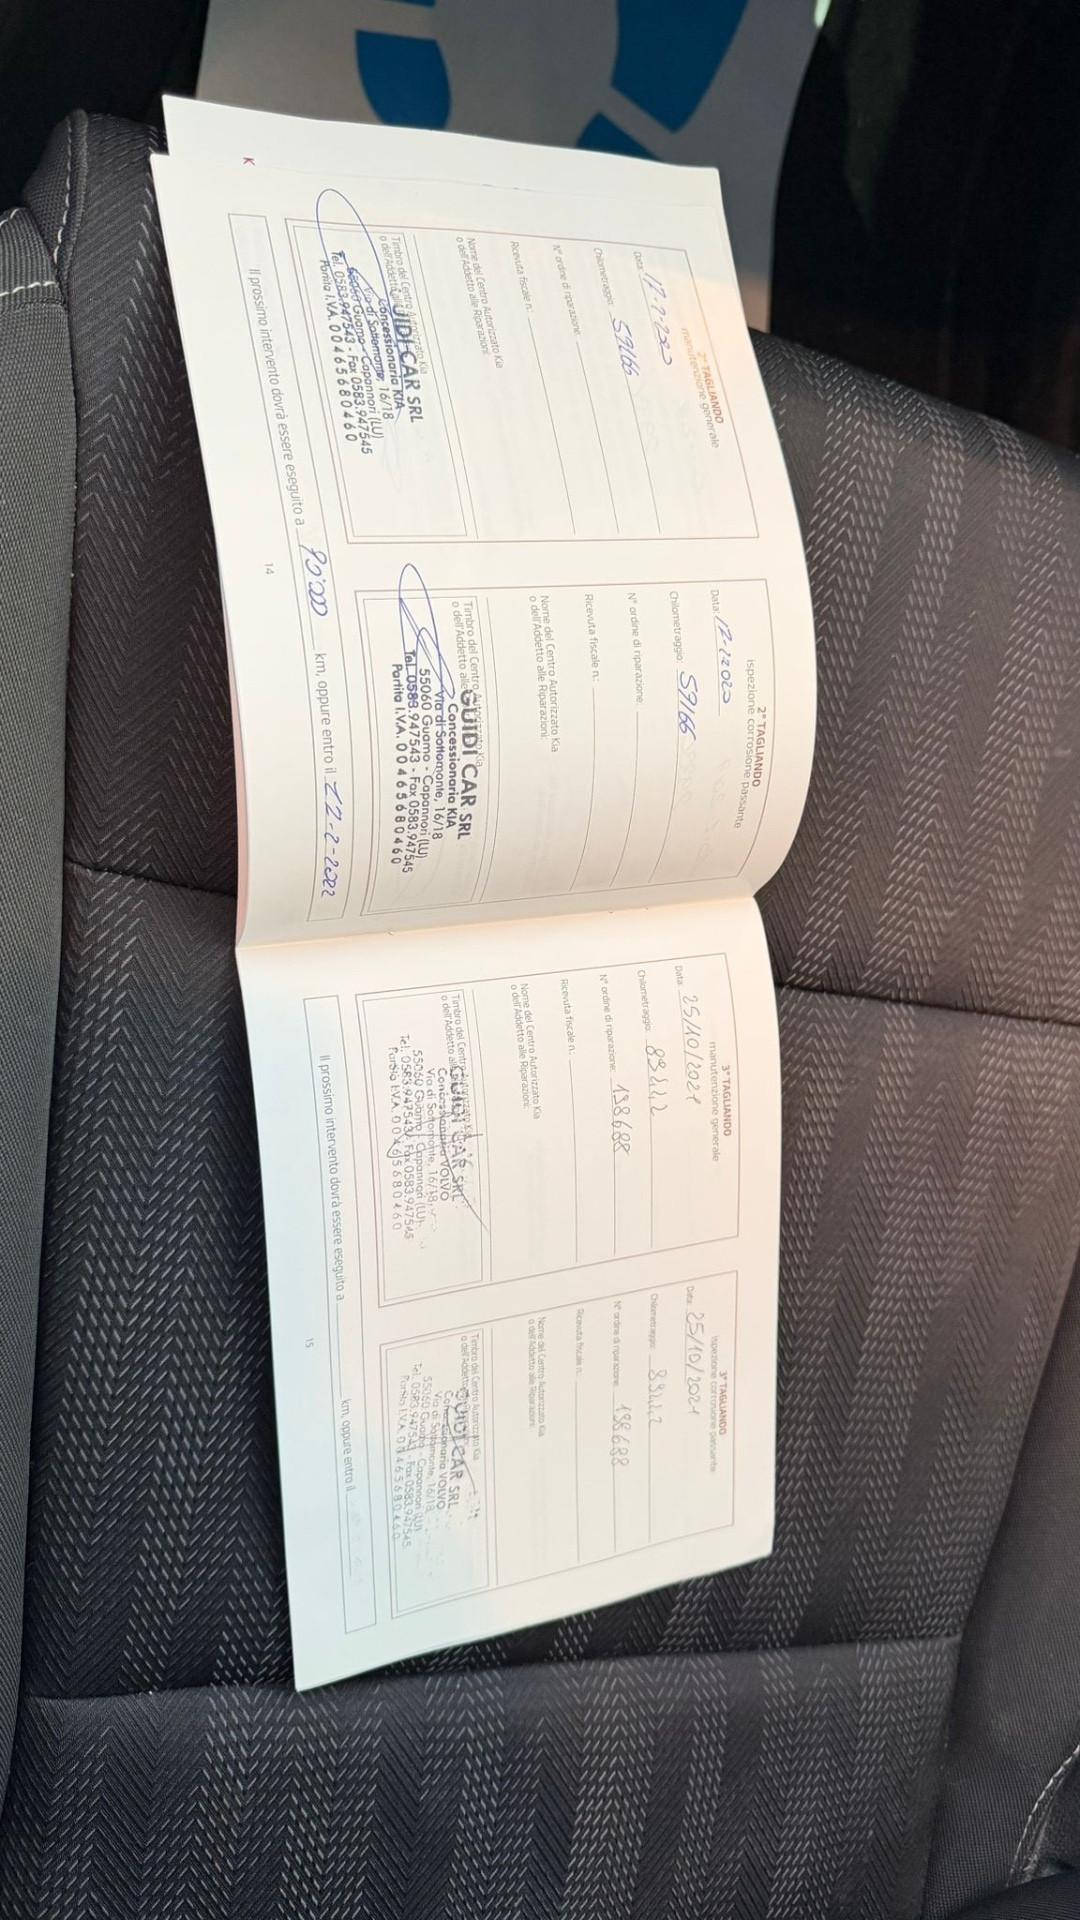 2° TAGLIANDO
manutenzione generale
Data: 17-2-2020
Chilometraggio: 59166
N° ordine di riparazione:
Ricevuta fiscale n.:
Nome del Centro Autorizzato Kia
o dell'Addetto alle Riparazioni:
Timbro del Centro Autorizzato Kia
o dell'Addetto alle
GUIDI CAR SRL
Concessionaria KIA
Via di Sottomonte, 16/18
55060 Guamo - Capannori (LU)
Tel. 0583.947543 - Fax 0583.947545
Partita I.V.A. 00465680460
2° TAGLIANDO
ispezione corrosione passante
Data: 17-2-2020
Chilometraggio: 59166
N° ordine di riparazione:
Ricevuta fiscale n.:
Nome del Centro Autorizzato Kia
o dell'Addetto alle Riparazioni:
Timbro del Centro Autorizzato Kia
o dell'Addetto alle
GUIDI CAR SRL
Concessionaria KIA
Via di Sottomonte, 16/18
55060 Guamo - Capannori (LU)
Tel. 0583.947543 - Fax 0583.947545
Partita I.V.A. 00465680460
Il prossimo intervento dovrà essere eseguito a 90'000 km, oppure entro il 17-2-2022
14
K
3° TAGLIANDO
manutenzione generale
Data: 25/10/2021
Chilometraggio: 89442
N° ordine di riparazione: 198688
Ricevuta fiscale n.:
Nome del Centro Autorizzato Kia
o dell'Addetto alle Riparazioni:
Timbro del Centro Autorizzato Kia
o dell'Addetto alle
GUIDI CAR SRL
Concessionaria VOLVO
Via di Sottomonte, 16/18
55060 Guamo - Capannori (LU)
Tel. 0583.947543 - Fax 0583.947545
Partita I.V.A. 00465680460
3° TAGLIANDO
ispezione corrosione passante
Data: 25/10/2021
Chilometraggio: 89442
N° ordine di riparazione: 198688
Ricevuta fiscale n.:
Nome del Centro Autorizzato Kia
o dell'Addetto alle Riparazioni:
Timbro del Centro Autorizzato Kia
o dell'Addetto
GUIDI CAR SRL
Concessionaria VOLVO
Via di Sottomonte, 16/18
55060 Guamo - Capannori (LU)
Tel. 0583.947543 - Fax 0583.947545
Partita I.V.A. 00465680460
Il prossimo intervento dovrà essere eseguito a km, oppure entro il
15